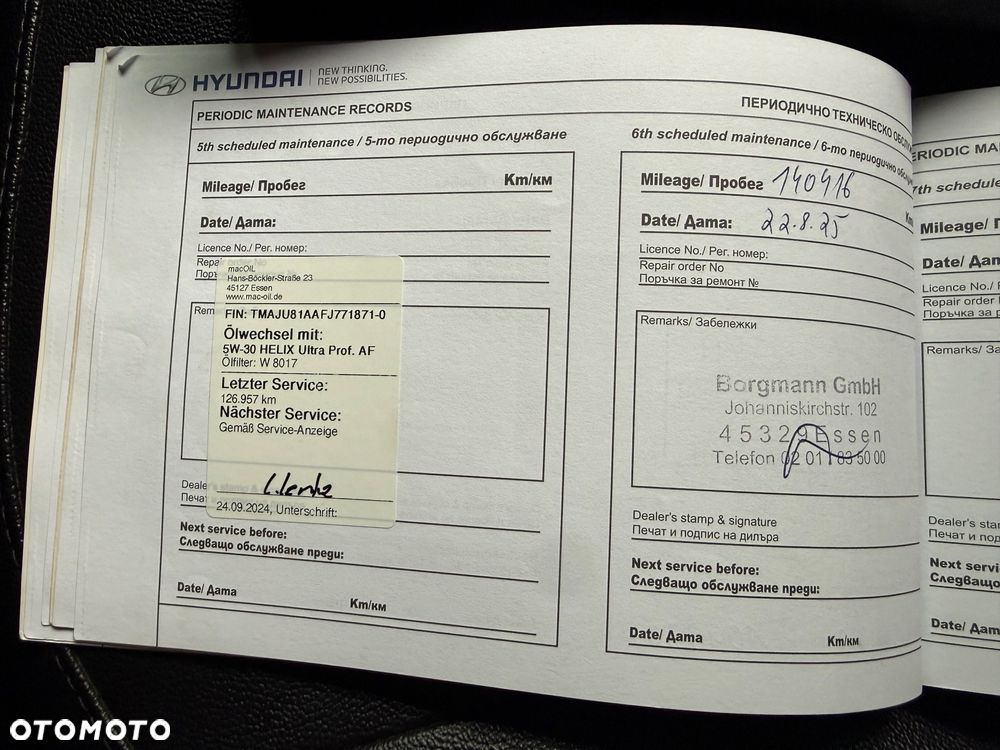 HYUNDAI | NEW THINKING.
NEW POSSIBILITIES.
PERIODIC MAINTENANCE RECORDS
5th scheduled maintenance / 5-то периодично обслужване
Mileage/ Пробег Km/км
Date/ Дата:
Licence No./ Рег. номер:
Repair order No
Поръч
macOIL
Hans-Böckler-Straße 23
45127 Essen
www.mac-oil.de
Rem
FIN: TMAJU81AAFJ771871-0
Ölwechsel mit:
5W-30 HELIX Ultra Prof. AF
Ölfilter: W 8017
Letzter Service:
126.957 km
Nächster Service:
Gemäß Service-Anzeige
24.09.2024, Unterschrift:
Dealer's stamp &
Печат и
Next service before:
Следващо обслужване преди:
Date/ Дата Km/км
ПЕРИОДИЧНО ТЕХНИЧЕСКО ОБСЛ
6th scheduled maintenance / 6-то периодично обслу
Mileage/ Пробег 140416
Km
Date/ Дата: 22.8.25
Licence No./ Рег. номер:
Repair order No
Поръчка за ремонт №
Remarks/ Забележки
Borgmann GmbH
Johanniskirchstr. 102
45329 Essen
Telefon 02 01 / 83 50 00
Dealer's stamp & signature
Печат и подпис на дилъра
Next service before:
Следващо обслужване преди:
Date/ Дата Km/км
ERIODIC MA
7th schedule
Mileage/ П
Date/ Дат
Licence No./ Р
Repair order N
Поръчка за р
Remarks/ За
Dealer's stam
Печат и под
Next servi
Следващо
Date/ Дат
OTOMOTO